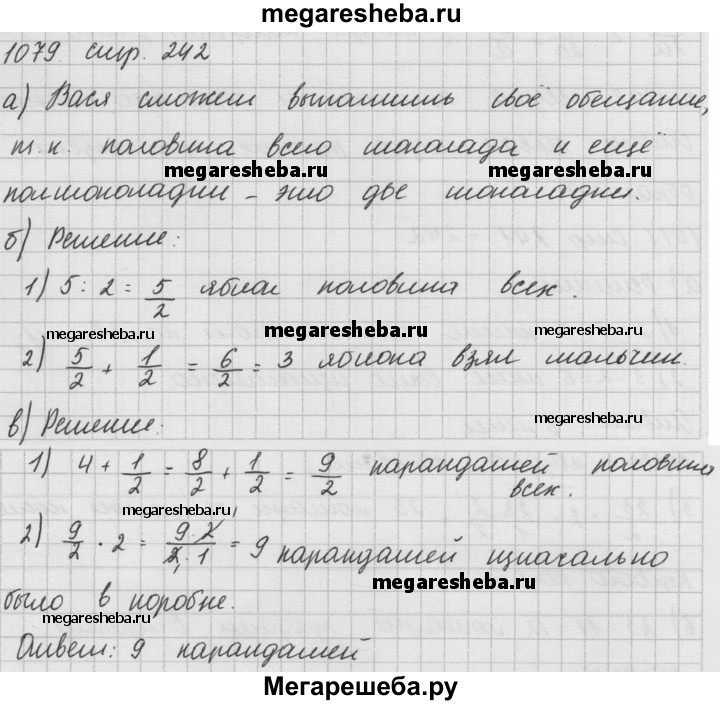 megaresheba.ru
1079 стр. 242
а) Вася сможет выполнить своё обещание,
т.к. половина всего шоколада и ещё
megaresheba.ru megaresheba.ru
полшоколадки - это две шоколадки.
б) Решение:
1) 5 : 2 = 5/2 яблок половина всех.
megaresheba.ru megaresheba.ru megaresheba.ru
2) 5/2 + 1/2 = 6/2 = 3 яблока взял мальчик.
megaresheba.ru
в) Решение:
1) 4 + 1/2 = 8/2 + 1/2 = 9/2 карандашей половина
всех.
megaresheba.ru
2) 9/2 · 2 = 9·2/2·1 = 9 карандашей изначально
megaresheba.ru
было в коробке.
Ответ: 9 карандашей
Мегарешеба.ру